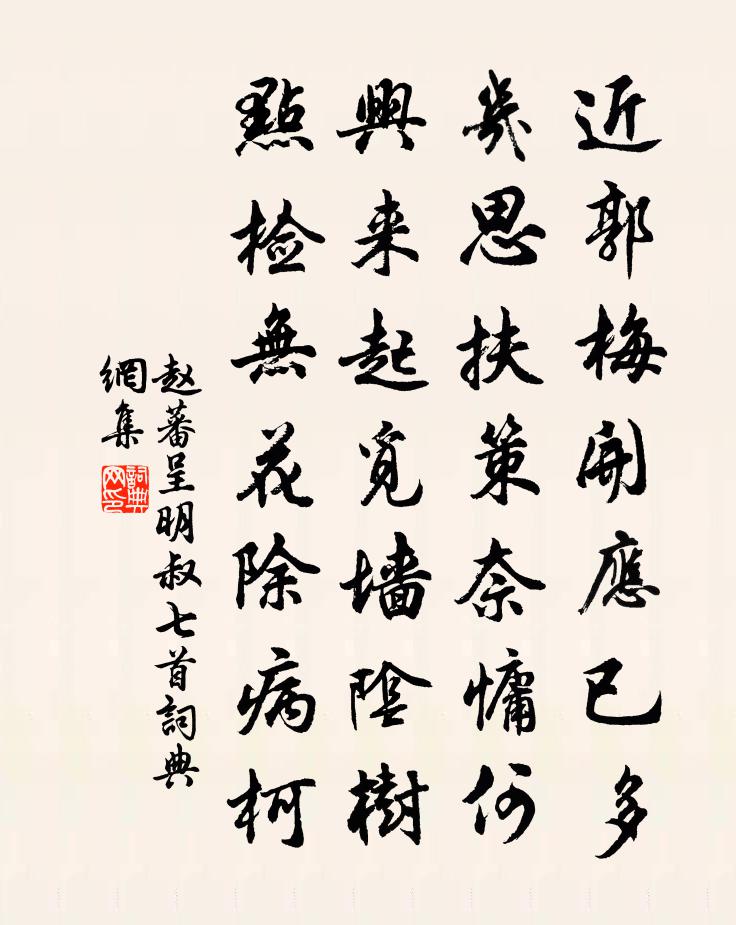 近郭梅開應已多
幾思扶策奈慵何
興来起覓墙陰樹
點检無花除病柯
赵蕃呈明叔七首詞典
網集
詞典
网印